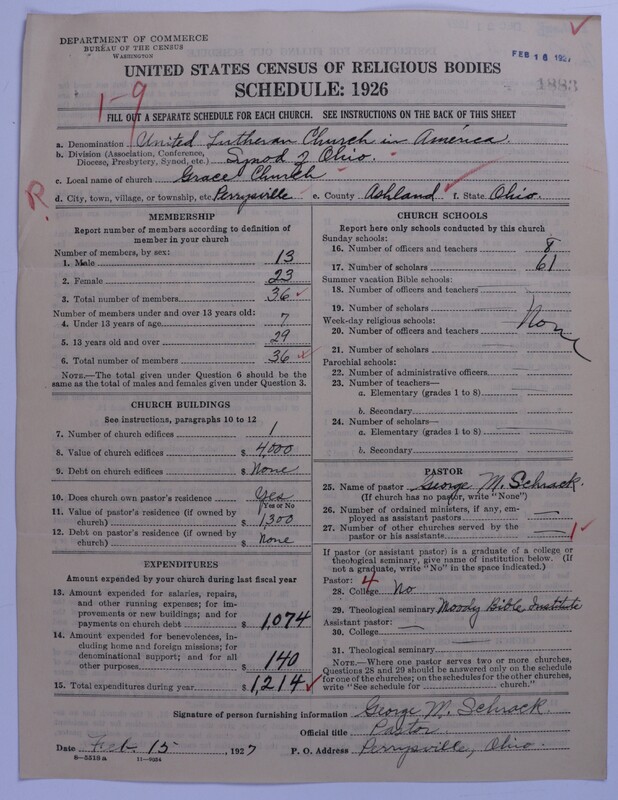 DEPARTMENT OF COMMERCE
BUREAU OF THE CENSUS
WASHINGTON
FEB 16 1927
1883
UNITED STATES CENSUS OF RELIGIOUS BODIES
SCHEDULE: 1926
1-9
FILL OUT A SEPARATE SCHEDULE FOR EACH CHURCH. SEE INSTRUCTIONS ON THE BACK OF THIS SHEET
a. Denomination United Lutheran Church in America
b. Division (Association, Conference, Diocese, Presbytery, Synod, etc.) Synod of Ohio.
c. Local name of church Grace Church
R
d. City, town, village, or township, etc Perrysville e. County Ashland f. State Ohio.
MEMBERSHIP
Report number of members according to definition of
member in your church
Number of members, by sex:
1. Male 13
2. Female 23
3. Total number of members 36
Number of members under and over 13 years old:
4. Under 13 years of age 7
5. 13 years old and over 29
6. Total number of members 36
NOTE.—The total given under Question 6 should be
same as the total of males and females given under Question 3.
CHURCH BUILDINGS
See instructions, paragraphs 10 to 12
7. Number of church edifices 1
8. Value of church edifices $ 4,000
9. Debt on church edifices $ None
10. Does church own pastor's residence Yes
(Yes or No)
11. Value of pastor's residence (if owned by
church) $ 1,300
12. Debt on pastor's residence (if owned by
church) $ None
EXPENDITURES
Amount expended by your church during last fiscal year
13. Amount expended for salaries, repairs,
and other running expenses; for im-
provements or new buildings; and for
payments on church debt $ 1,074
14. Amount expended for benevolences, in-
cluding home and foreign missions; for
denominational support; and for all
other purposes $ 140
15. Total expenditures during year $ 1,214
CHURCH SCHOOLS
Report here only schools conducted by this church
Sunday schools:
16. Number of officers and teachers 8
17. Number of scholars 61
Summer vacation Bible schools:
18. Number of officers and teachers
19. Number of scholars None
Week-day religious schools:
20. Number of officers and teachers
21. Number of scholars
Parochial schools:
22. Number of administrative officers
23. Number of teachers—
a. Elementary (grades 1 to 8)
b. Secondary
24. Number of scholars—
a. Elementary (grades 1 to 8)
b. Secondary
PASTOR
25. Name of pastor George M. Schrack.
(If church has no pastor, write "None")
26. Number of ordained ministers, if any, em-
ployed as assistant pastors
27. Number of other churches served by the
pastor or his assistants 1
If pastor (or assistant pastor) is a graduate of a college or
theological seminary, give name of institution below. (If
not a graduate, write "No" in the space indicated.)
Pastor: 4
28. College No
29. Theological seminary Moody Bible Institute
Assistant pastor:
30. College
31. Theological seminary
NOTE.—Where one pastor serves two or more churches,
Questions 28 and 29 should be answered only on the schedule
for one of the churches; on the schedules for the other churches,
write "See schedule for church."
Signature of person furnishing information George M. Schrack.
Official title Pastor
Date Feb. 15, 1927 P. O. Address Perrysville, Ohio.
8-5518a 11-9234